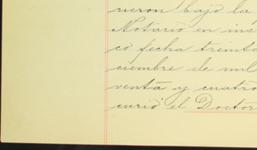 rieron bajo la
Notario en me
co fecha treinta
ciembre de mil
venta y cuatro
curió el Doctor